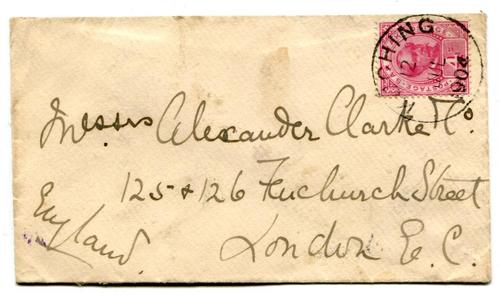 HING
2
JUL
1904
POSTAGE
Messrs Alexander Clarke & Co
125 & 126 Fenchurch Street
London E. C.
England.